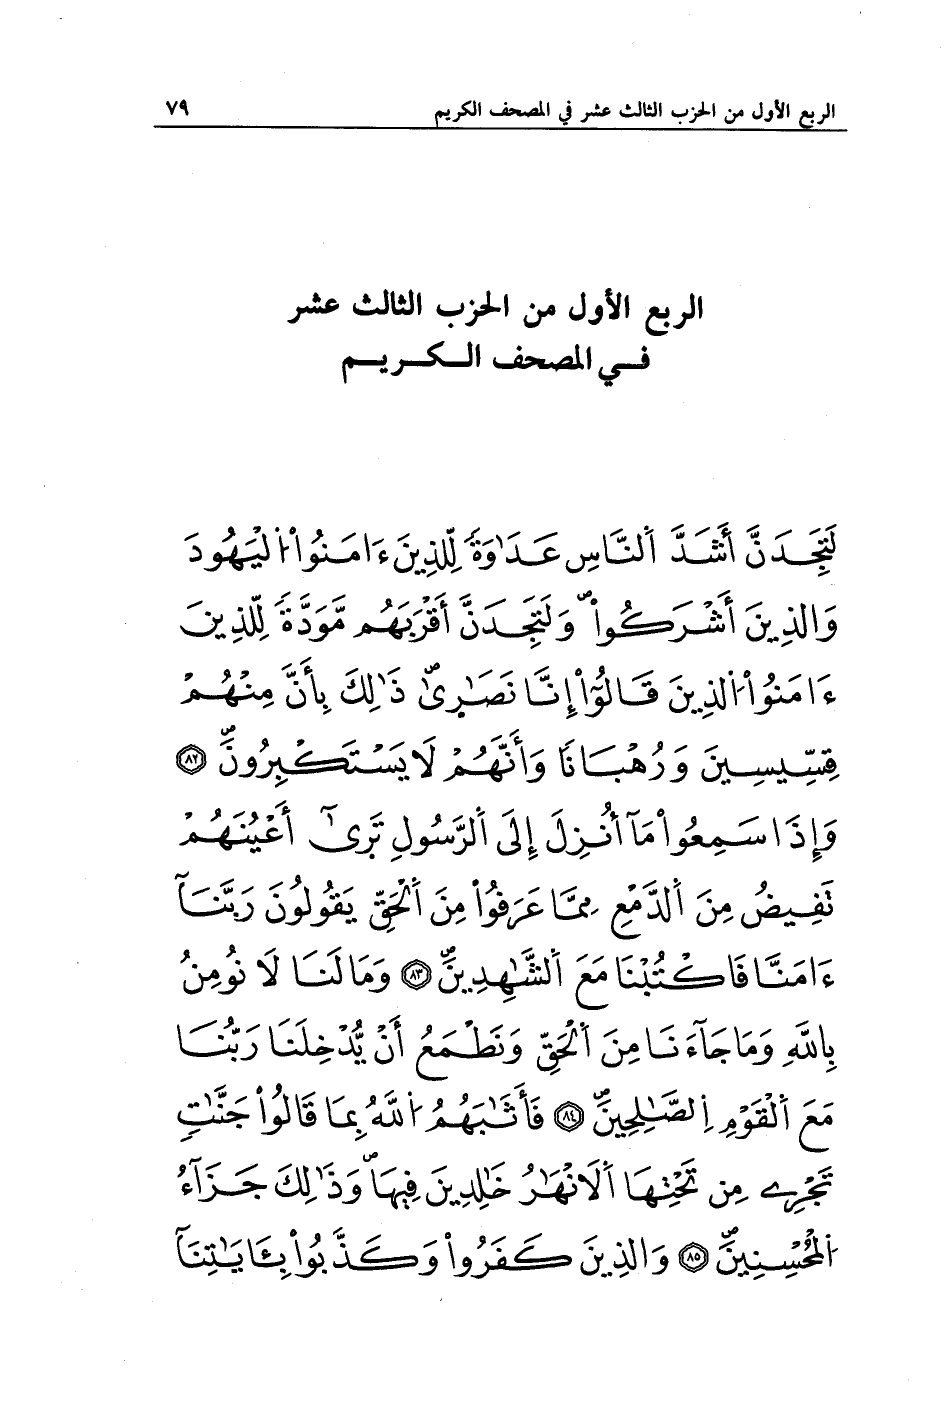 الربع الأول من الحزب الثالث عشر في المصحف الكريم ٧٩
الربع الأول من الحزب الثالث عشر
فـي المصحف الـكـريـم
لَتَجِدَنَّ أَشَدَّ اَ۬لنَّاسِ عَدَٰوَةٗ لِّلذِينَ ءَامَنُواْ اُ۬لْيَهُودَ
وَالذِينَ أَشْرَكُواْۖ وَلَتَجِدَنَّ أَقْرَبَهُم مَّوَدَّةٗ لِّلذِينَ
ءَامَنُواْ اُ۬لذِينَ قَالُوٓاْ إِنَّا نَصَٰرٜيٰۖ ذَٰلِكَ بِأَنَّ مِنْهُمْ
قِسِّيسِينَ وَرُهْبَانٗا وَأَنَّهُمْ لَا يَسْتَكْبِرُونَۖ ٨٢
وَإِذَا سَمِعُواْ مَآ أُنزِلَ إِلَى اَ۬لرَّسُولِ تَرٜيٰٓ أَعْيُنَهُمْ
تَفِيضُ مِنَ اَ۬لدَّمْعِ مِمَّا عَرَفُواْ مِنَ اَ۬لْحَقِّ يَقُولُونَ رَبَّنَآ
ءَامَنَّا فَاكْتُبْنَا مَعَ اَ۬لشَّٰهِدِينَۖ ٨٣ وَمَا لَنَا لَا نُومِنُ
بِاللَّهِ وَمَا جَآءَنَا مِنَ اَ۬لْحَقِّ وَنَطْمَعُ أَنْ يُّدْخِلَنَا رَبُّنَا
مَعَ اَ۬لْقَوْمِ اِ۬لصَّٰلِحِينَۖ ٨٤ فَأَثَٰبَهُمُ اُ۬للَّهُ بِمَا قَالُواْ جَنَّٰتٖ
تَجْرِے مِن تَحْتِهَا اَ۬لَانْهَٰرُ خَٰلِدِينَ فِيهَاۖ وَذَٰلِكَ جَزَآءُ
اُ۬لْمُحْسِنِينَۖ ٨٥ وَالذِينَ كَفَرُواْ وَكَذَّبُواْ بِـَٔايَٰتِنَآ